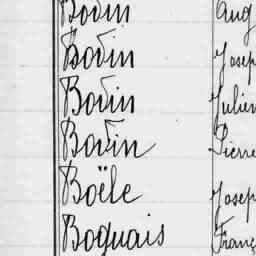 Bodin Aug
Bodin Josep
Bodin Julien
Bodin Pierre
Boële Josep
Boguais Franç